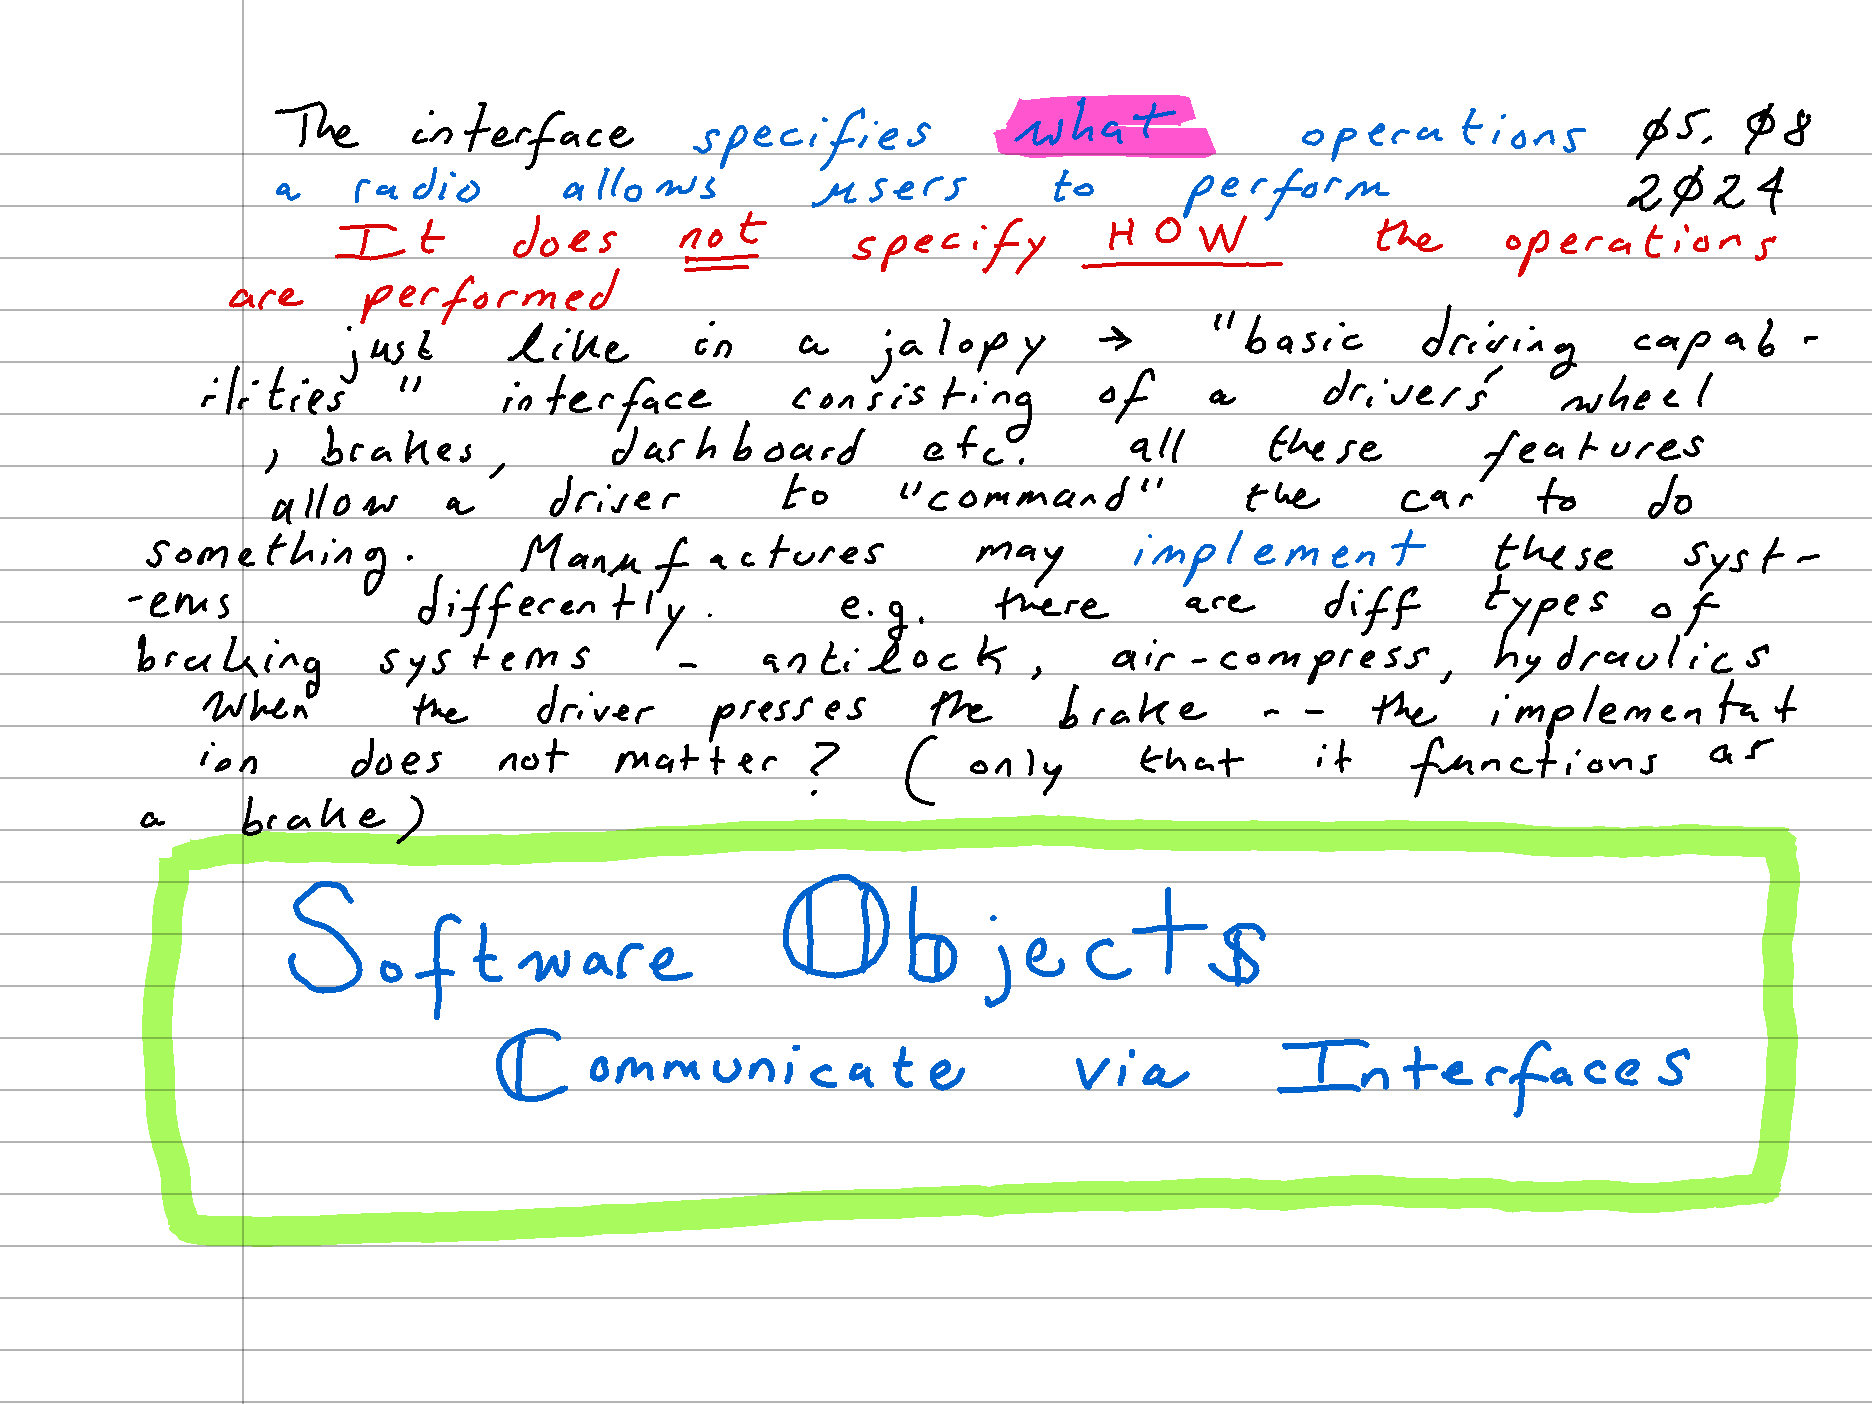 The interface specifies what operations ø5. ø8
a radio allows users to perform 2ø24
It does not specify HOW the operations
are performed
just like in a jalopy → "basic driving capab-
ilities" interface consisting of a drivers' wheel
, brakes, dashboard etc. all these features
allow a driver to "command" the car to do
something. Manufactures may implement these syst-
-ems differently. e.g. there are diff types of
braking systems - antilock, air-compress, hydraulics
When the driver presses the brake -- the implementat
ion does not matter? (only that it functions as
a brake)
Software Objects
Communicate via Interfaces